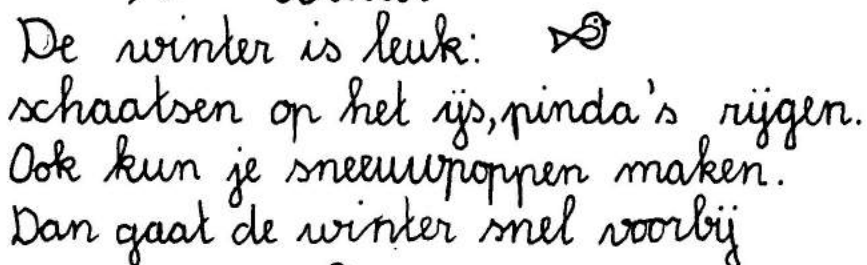 De winter is leuk:
schaatsen op het ijs, pinda's rijgen.
Ook kun je sneeuwpoppen maken.
Dan gaat de winter snel voorbij